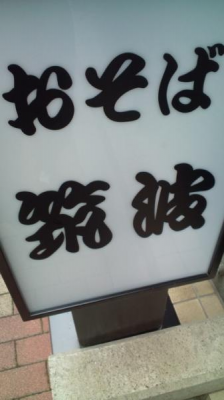 おそば
筑波